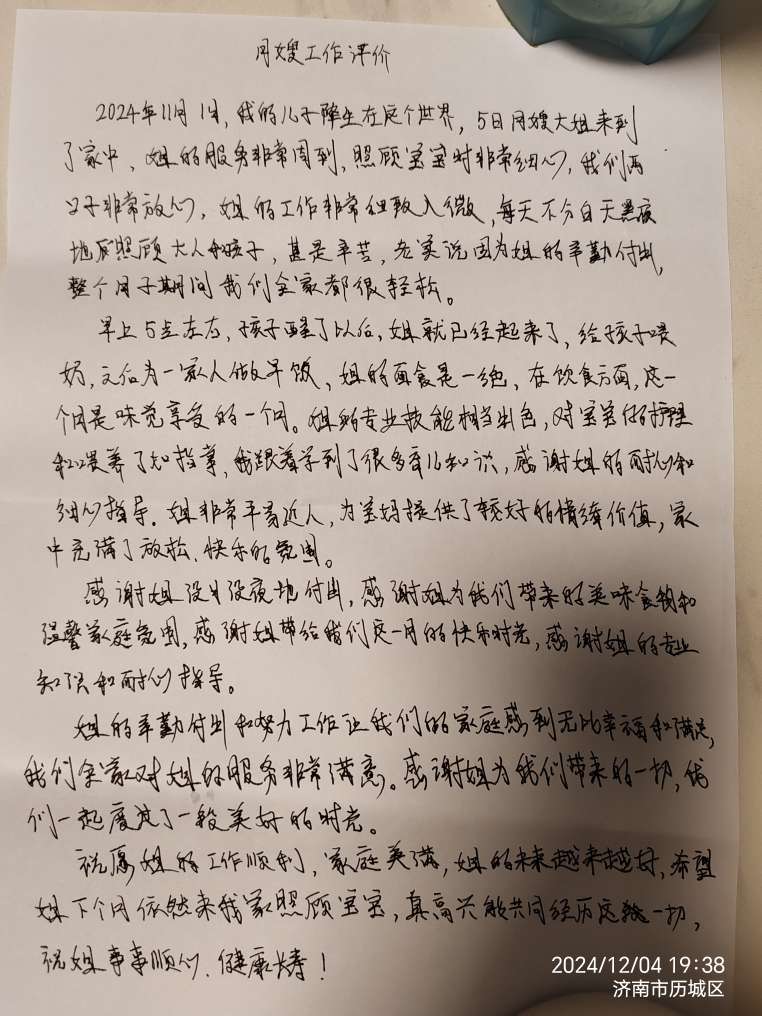 月嫂工作评价
2024年11月1日，我的儿子降生在这个世界，5日月嫂大姐来到
了家中，姐的服务非常周到，照顾宝宝时非常细心，我们两
口子非常放心，姐的工作非常细致入微，每天不分白天黑夜
地照顾大人和孩子，甚是辛苦，老实说因为姐的辛勤付出，
整个月子期间我们全家都很轻松。
早上5点左右，孩子醒了以后，姐就已经起来了，给孩子喂
奶，之后为一家人做早饭，姐的面食是一绝，在饮食方面，这一
个月是味觉享受的一个月。姐的专业技能相当出色，对宝宝的护理
和喂养了如指掌，我跟着学到了很多育儿知识，感谢姐的耐心和
细心指导。姐非常平易近人，为宝妈提供了较好的情绪价值，家
中充满了放松、快乐的氛围。
感谢姐没日没夜地付出，感谢姐为我们带来的美味食物和
温馨家庭氛围，感谢姐带给我们这一月的快乐时光，感谢姐的专业
知识和耐心指导。
姐的辛勤付出和努力工作让我们的家庭感到无比幸福和满足，
我们全家对姐的服务非常满意。感谢姐为我们带来的一切，我
们一起度过了一段美好的时光。
祝愿姐的工作顺利，家庭美满，姐的未来越来越好，希望
姐下个月依然来我家照顾宝宝，真高兴能共同经历这一切，
祝姐事事顺心、健康长寿！
2024/12/04 19:38
济南市历城区